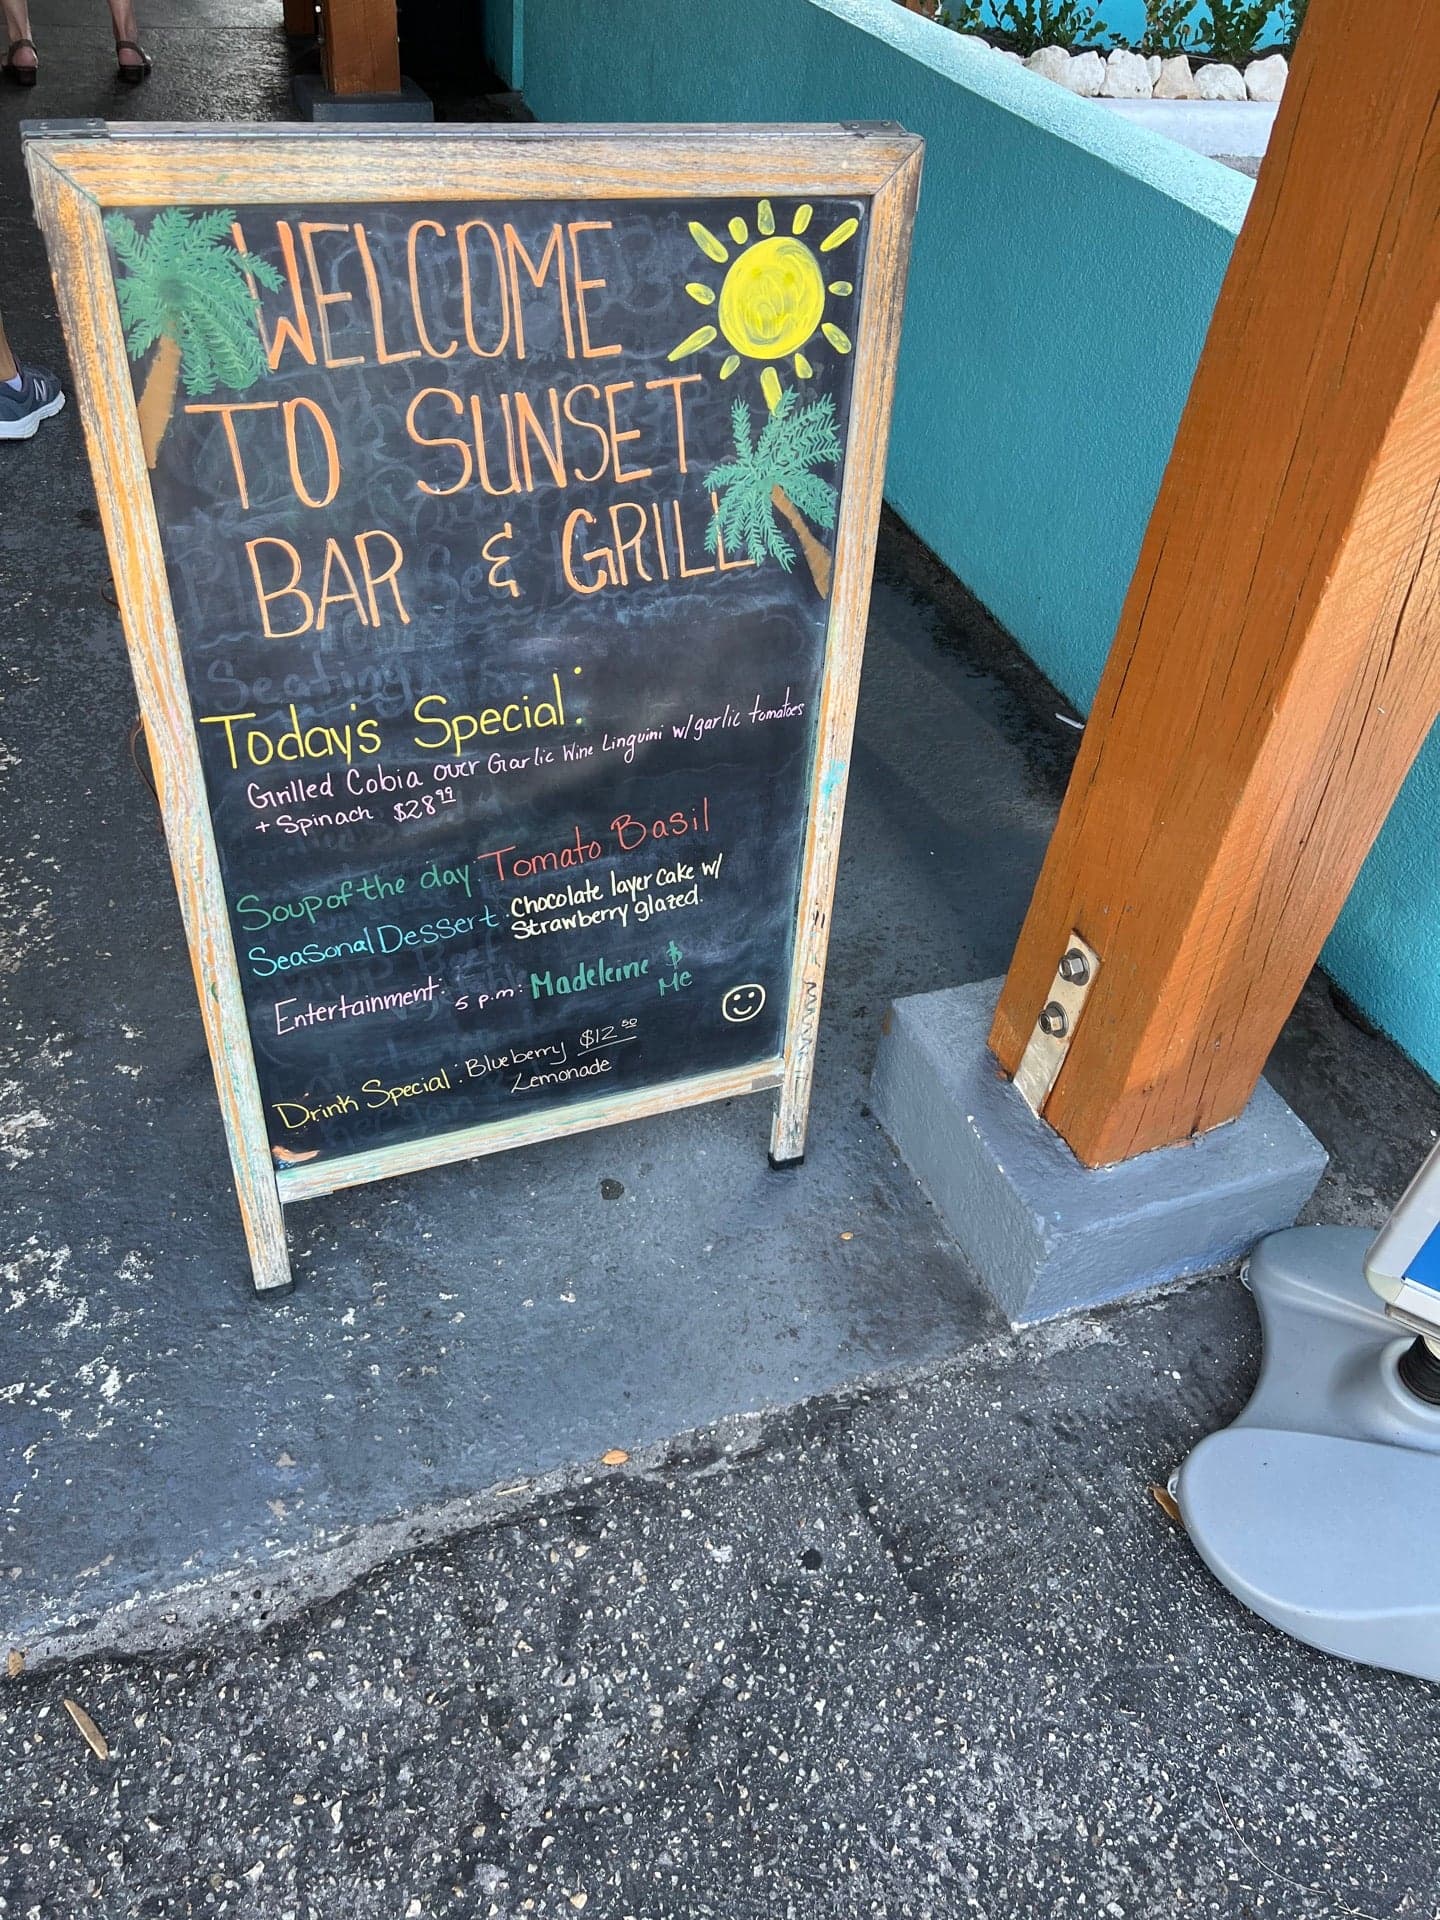 WELCOME
TO SUNSET
BAR & GRILL
Today's Special:
Grilled Cobia over Garlic Wine Linguini w/garlic tomatoes
+ Spinach $28.99
Soup of the day: Tomato Basil
Seasonal Dessert: Chocolate layer cake w/
Strawberry glazed.
Entertainment: 5 p.m: Madeleine &
Me
Drink Special: Blueberry $12.50
Lemonade